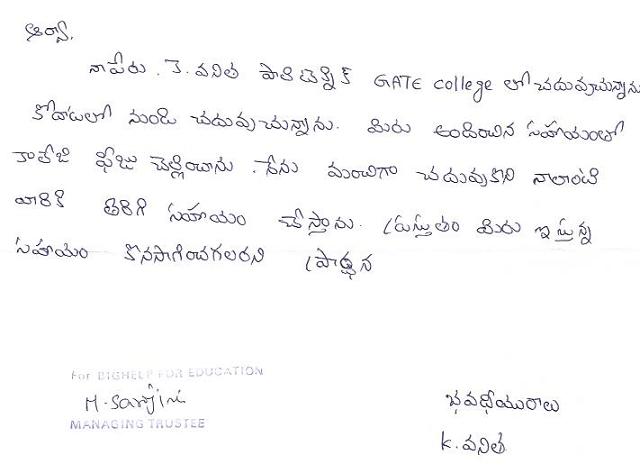 ఆర్యా,
నా పేరు. కె. వనిత పాలిటెక్నిక్ GATE college లో చదువుచున్నాను
కోదాడలో నుండి చదువుచున్నాను. మీరు అందించిన సహాయంతో
కాలేజి ఫీజు చెల్లించాను. నేను మంచిగా చదువుకొని నాలాంటి
వారికి తిరిగి సహాయం చేస్తాను. ప్రస్తుతం మీరు ఇస్తున్న
సహాయం కొనసాగించగలరని ప్రార్థన
For BIGHELP FOR EDUCATION
M. Sarojini
MANAGING TRUSTEE
భవదీయురాలు
K. వనిత